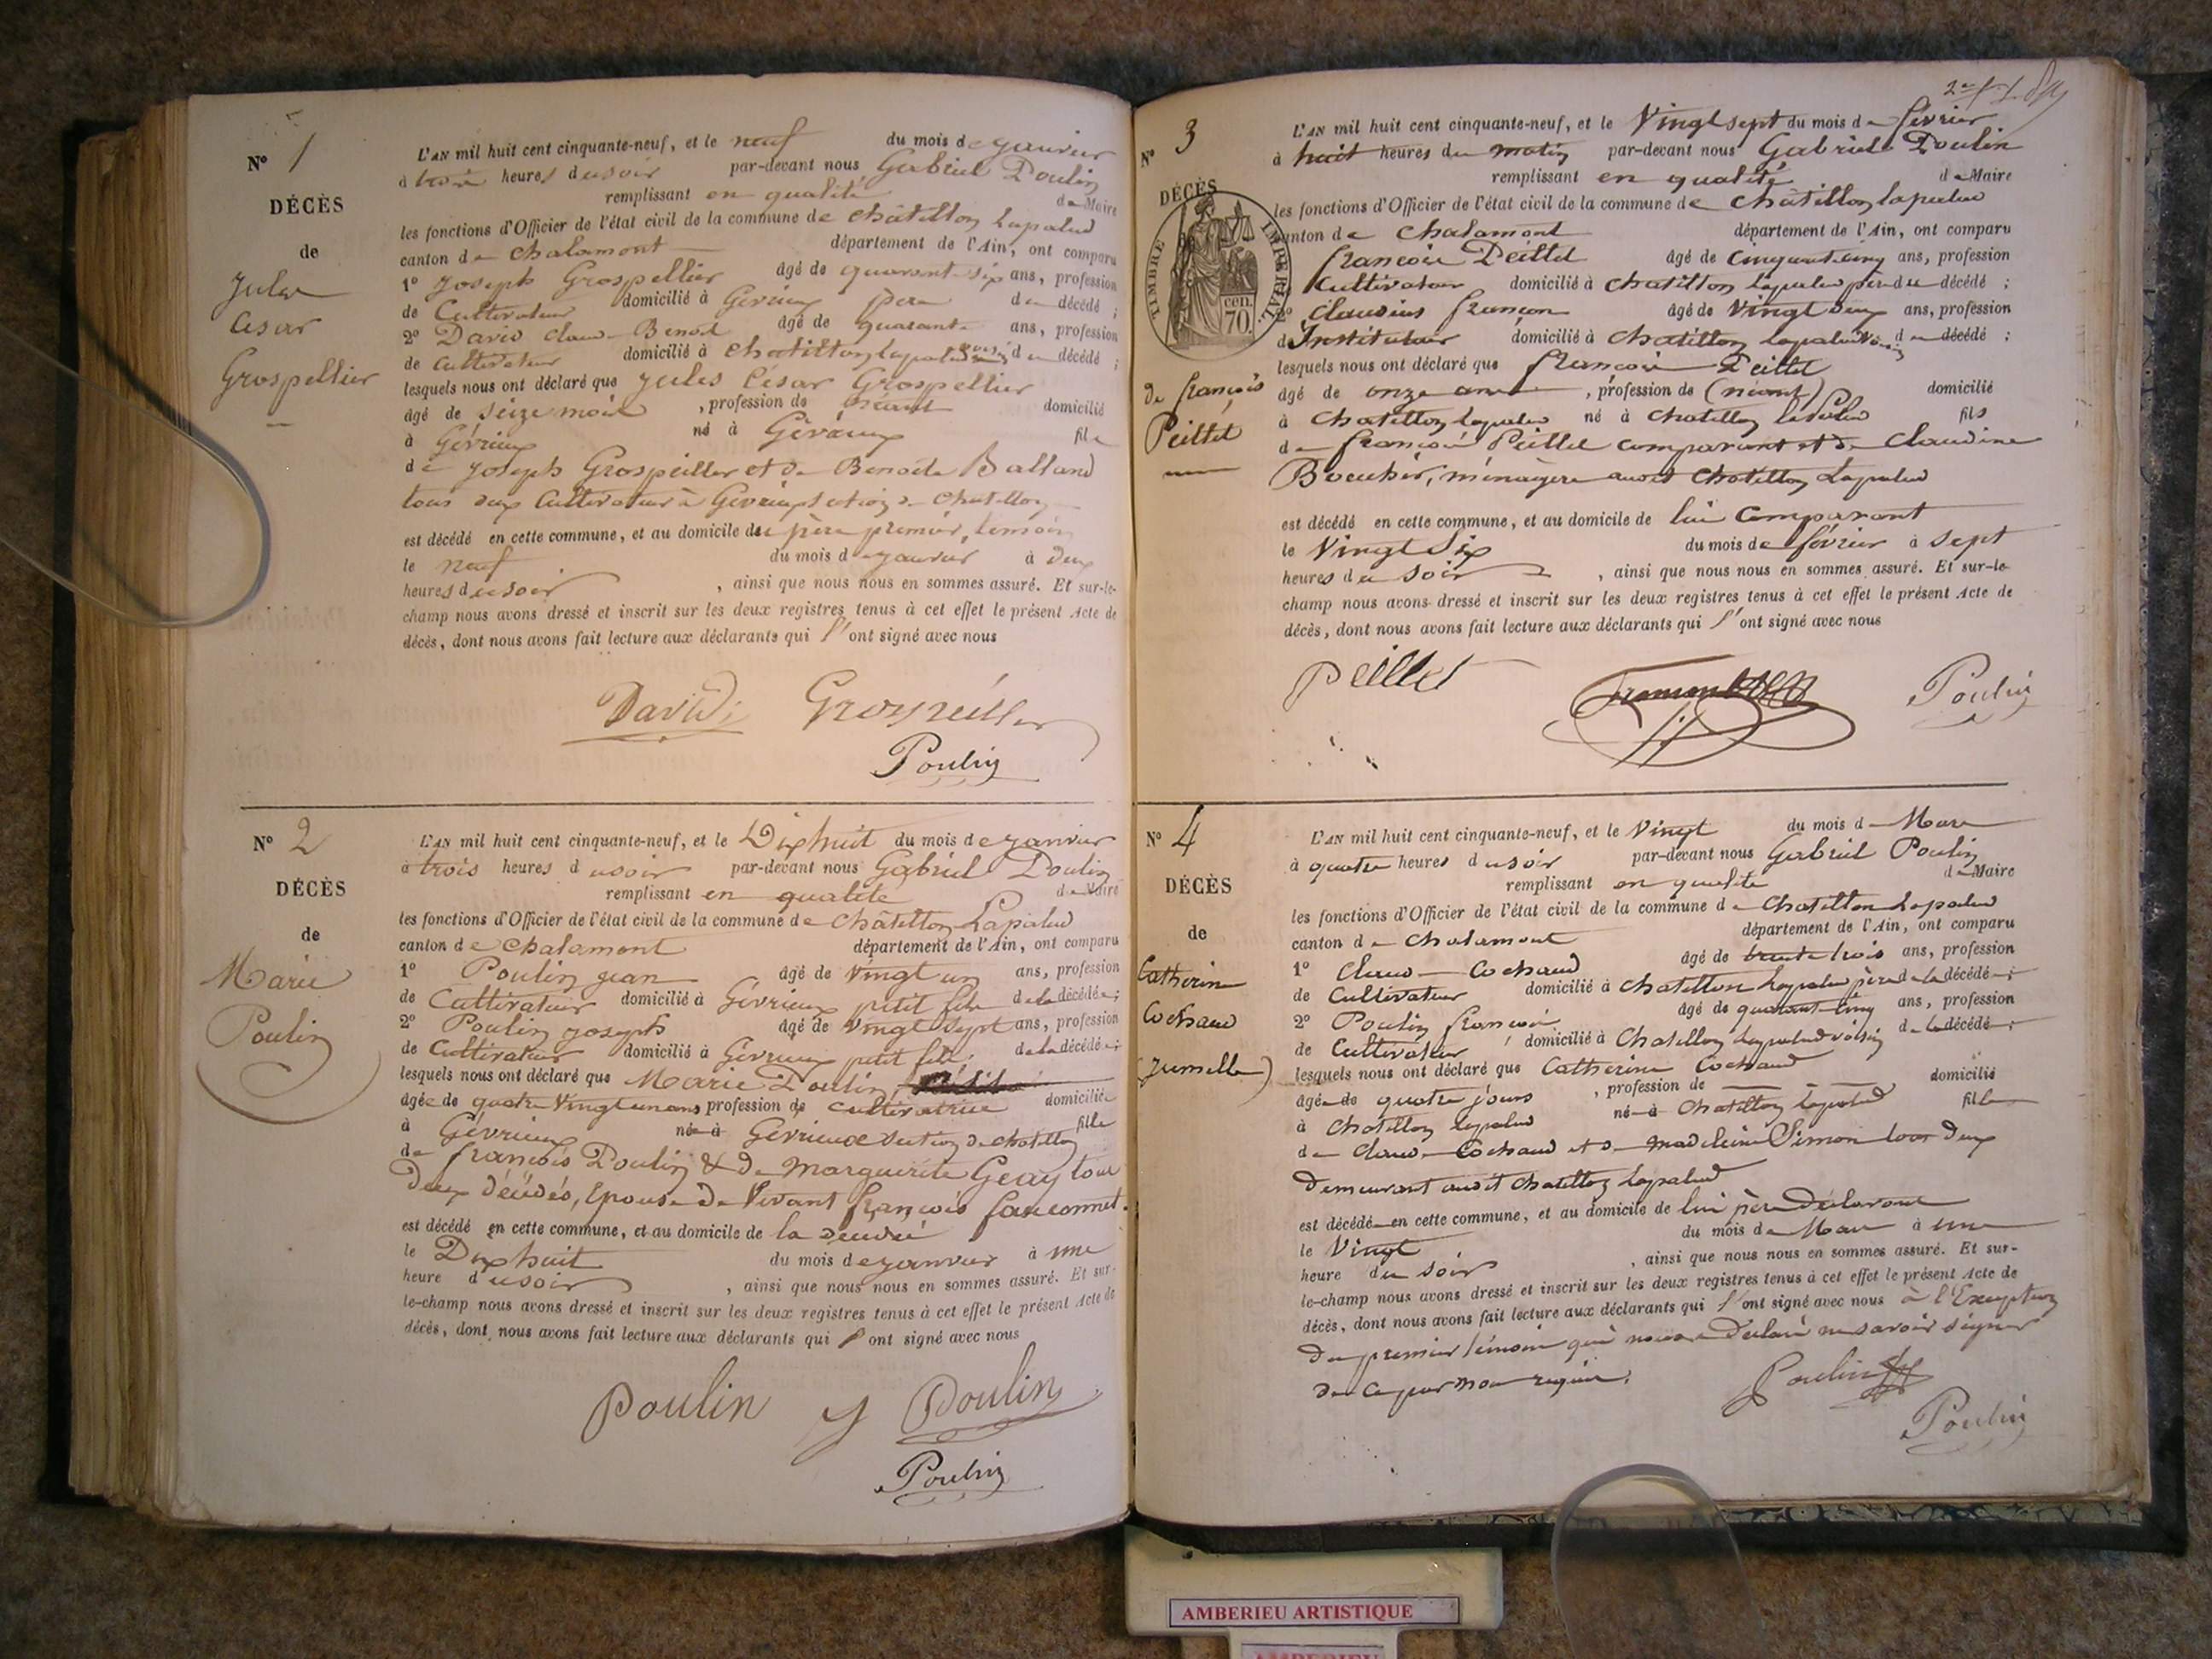 N° 1
DÉCÈS
de
Jules
César
Grospellier
L'AN mil huit cent cinquante-neuf, et le neuf du mois de janvier
à trois heures du soir par-devant nous Gabriel Poulin
remplissant en qualité de Maire
les fonctions d'Officier de l'état civil de la commune de Châtillon Lapalud
canton de Chalamont département de l'Ain, ont comparu
1° Joseph Grospellier âgé de quarante-six ans, profession
de Cultivateur domicilié à Gévrieux père du décédé ;
2° David Claude Benoit âgé de quarante ans, profession
de Cultivateur domicilié à Chatillon Lapalud voisin du décédé ;
lesquels nous ont déclaré que Jules César Grospellier
âgé de seize mois , profession de néant domicilié
à Gévrieux né à Gévrieux fils
de Joseph Grospeiller et de Benoite Balland
tous deux Cultivateurs à Gévrieux section de Chatillon
est décédé en cette commune, et au domicile du père premier témoin
le neuf du mois de janvier à deux
heures du soir , ainsi que nous nous en sommes assuré. Et sur-le-
champ nous avons dressé et inscrit sur les deux registres tenus à cet effet le présent Acte de
décès, dont nous avons fait lecture aux déclarants qui l'ont signé avec nous
David Grospeiller
Poulin
N° 2
DÉCÈS
de
Marie
Poulin
L'AN mil huit cent cinquante-neuf, et le Dix huit du mois de janvier
à trois heures du soir par-devant nous Gabriel Poulin
remplissant en qualité de Maire
les fonctions d'Officier de l'état civil de la commune de Châtillon Lapalud
canton de Chalamont département de l'Ain, ont comparu
1° Poulin Jean âgé de Vingt un ans, profession
de Cultivateur domicilié à Gévrieux petit fils de la décédée ;
2° Poulin Joseph âgé de Vingt Sept ans, profession
de Cultivateur domicilié à Gévrieux petit fils de la décédée ;
lesquels nous ont déclaré que Marie Poulin
âgée de quatre Vingt un ans profession de cultivatrice domiciliée
à Gévrieux née à Gévrieux section de chatillon fille
de François Poulin & de Marguerite Geay tous
Deux décédés, Epouse De Vivant François fauconnet.
est décédé en cette commune, et au domicile de la décédée
le Dix huit du mois de janvier à une
heure du soir , ainsi que nous nous en sommes assuré. Et sur-
le-champ nous avons dressé et inscrit sur les deux registres tenus à cet effet le présent Acte de
décès, dont nous avons fait lecture aux déclarants qui l'ont signé avec nous
Poulin J Poulin
Poulin
N° 3
DÉCÈS
TIMBRE IMPÉRIAL
cen.
70.
de françois
Peillet
L'AN mil huit cent cinquante-neuf, et le Vingt sept du mois de février
à huit heures du matin par-devant nous Gabriel Poulin
remplissant en qualité de Maire
les fonctions d'Officier de l'état civil de la commune de Châtillon lapalud
canton de Chalamont département de l'Ain, ont comparu
françois Peillet âgé de cinquante cinq ans, profession
Cultivateur domicilié à Chatillon lapalud père du décédé ;
2° Claudius françon âgé de Vingt deux ans, profession
d'Instituteur domicilié à Chatillon lapalud Voisin du décédé ;
lesquels nous ont déclaré que françois Peillet
âgé de onze ans , profession de (néant) domicilié
à Chatillon lapalud né à Chatillon lapalud fils
de françois Peillet comparant et de Claudine
Bouchér, ménagère audit Chatillon Lapalud
est décédé en cette commune, et au domicile de lui Comparant
le Vingt Six du mois de février à Sept
heures du Soir , ainsi que nous nous en sommes assuré. Et sur-le-
champ nous avons dressé et inscrit sur les deux registres tenus à cet effet le présent Acte de
décès, dont nous avons fait lecture aux déclarants qui l'ont signé avec nous
Peillet Poulin
N° 4
DÉCÈS
de
Catherine
Cochaud
(jumelle)
L'AN mil huit cent cinquante-neuf, et le Vingt du mois de Mars
à quatre heures du soir par-devant nous Gabriel Poulin
remplissant en qualité de Maire
les fonctions d'Officier de l'état civil de la commune de Chatillon Lapalud
canton de Chalamont département de l'Ain, ont comparu
1° Claude Cochaud âgé de trente trois ans, profession
de Cultivateur domicilié à Chatillon Lapalud père de la décédée ;
2° Poulin françois âgé de quarante cinq ans, profession
de Cultivateur domicilié à Chatillon Lapalud voisin de la décédée ;
lesquels nous ont déclaré que Catherine Cochaud
âgée de quatre jours , profession de domicilié
à Chatillon lapalud née à Chatillon lapalud fille
de Claude Cochaud et de Madeleine Simon tous deux
Demeurant audit Chatillon Lapalud
est décédée en cette commune, et au domicile de lui père Déclarant
le Vingt du mois de Mars à une
heure du soir , ainsi que nous nous en sommes assuré. Et sur-
le-champ nous avons dressé et inscrit sur les deux registres tenus à cet effet le présent Acte de
décès, dont nous avons fait lecture aux déclarants qui l'ont signé avec nous à l'Exception
du premier témoin qui nous a Déclaré ne savoir signer
de ce par nous requis.
Poulin
Poulin
AMBERIEU ARTISTIQUE
AMBERIEU